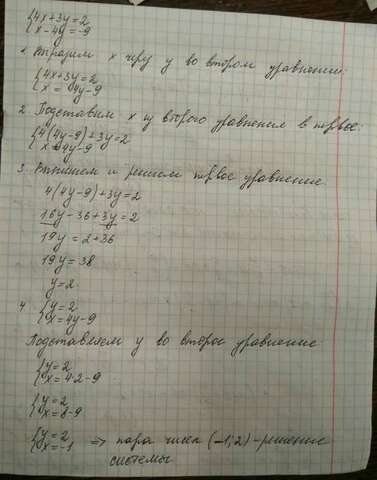 {4x+3y=2
{x-4y=-9
1. Выразим x через y во втором уравнении:
{4x+3y=2
{x = 4y-9
2. Подставим x из второго уравнения в первое:
{4(4y-9)+3y=2
{x=4y-9
3. Выпишем и решим первое уравнение:
4(4y-9)+3y=2
16y-36+3y=2
19y=2+36
19y=38
y=2
4. {y=2
{x=4y-9
Подставляем y во второе уравнение
{y=2
{x=4·2-9
{y=2
{x=8-9
{y=2
{x=-1 => пара чисел (-1;2)-решение
системы